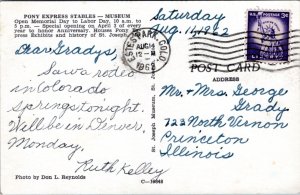 PONY EXPRESS STABLES — MUSEUM
Open Memorial Day to Labor Day, 10 a.m. to
5 p.m. — Special opening on April 3 of every
year to honor Anniversary. Houses Pony
press Exhibits and history of St. Joseph
Dear Gradys,
Saw a rodeo
in Colorado
Springs tonight.
Will be in Denver,
Monday,
Ruth Kelley
Photo by Don L. Reynolds
St. Joseph Museum, St. Joseph
Saturday
Aug. 11, 1962
ESTES PARK COLO.
AUG 14
PM
1962
POST CARD
ADDRESS
Mr. + Mrs. George
Grady
722 North Vernon
Princeton
Illinois